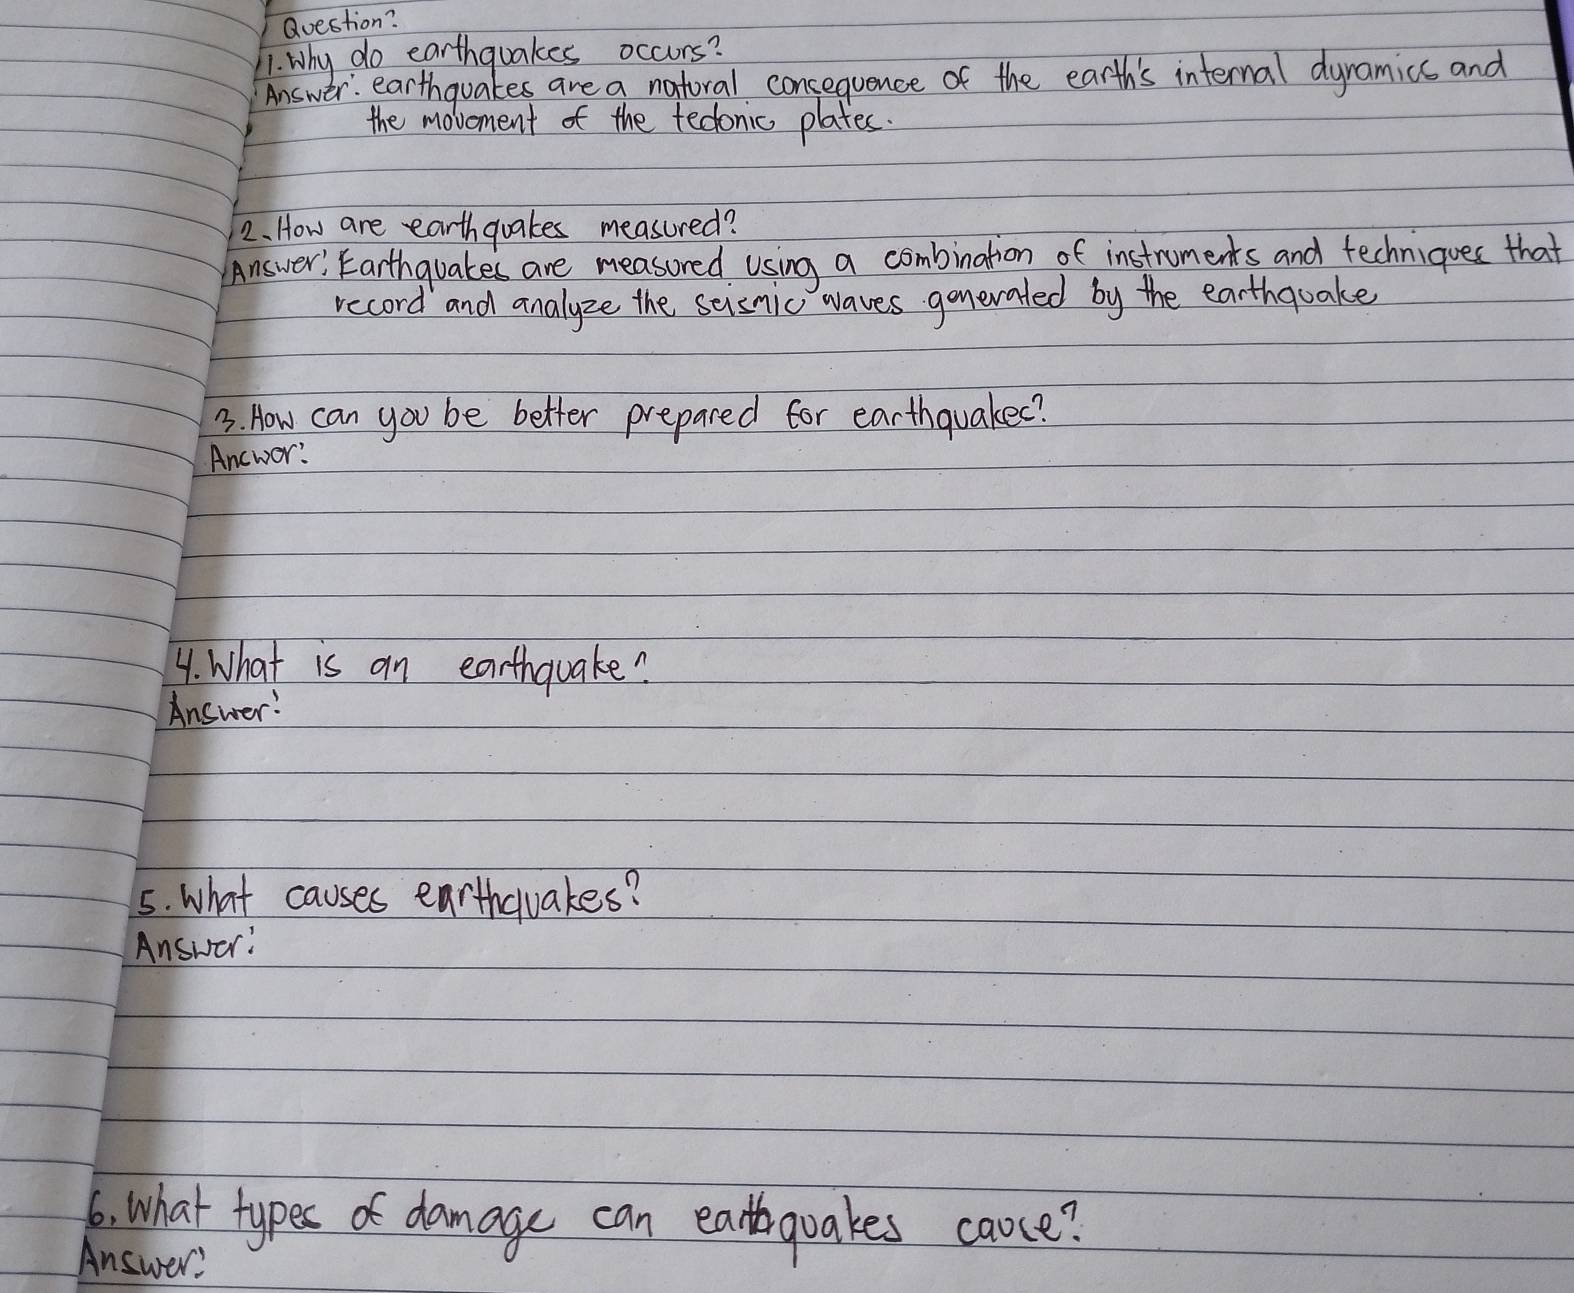 Question?
1. Why do earthquakes occurs?
Answer: earthquakes are a natural consequence of the earth's internal dynamics and
the movement of the tectonic plates.
2. How are earthquakes measured?
Answer: Earthquakes are measured using a combination of instruments and techniques that
record and analyze the seismic waves generated by the earthquake
3. How can you be better prepared for earthquakes?
Answer:
4. What is an earthquake?
Answer:
5. What causes earthquakes?
Answer:
6. What types of damage can earthquakes cause?
Answer: